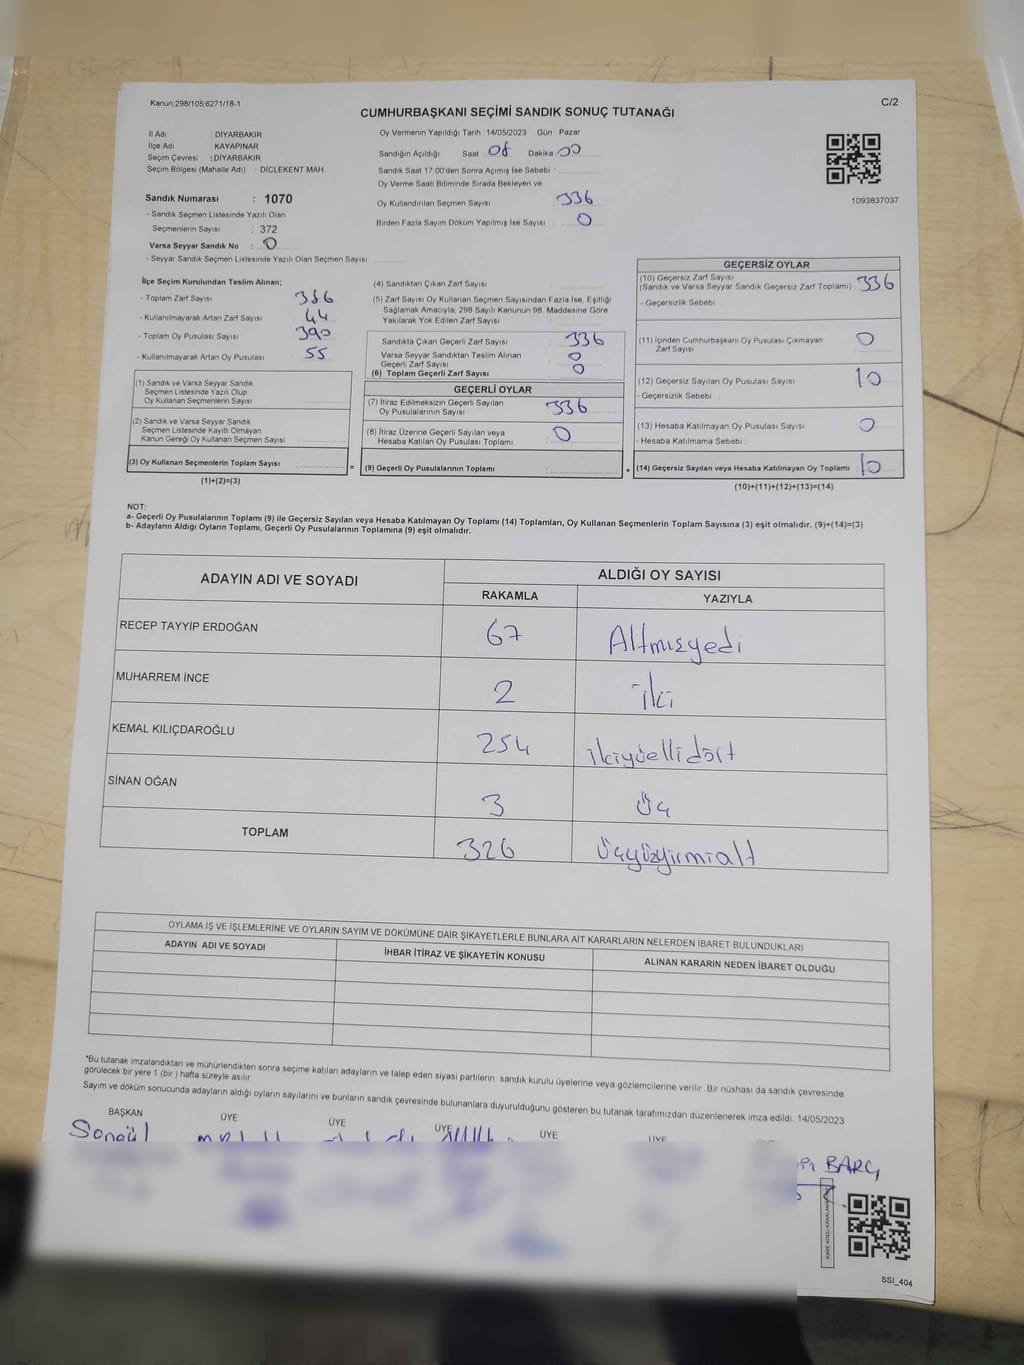 Kanun;298/105;6271/18-1
C/2
CUMHURBAŞKANI SEÇİMİ SANDIK SONUÇ TUTANAĞI
İl Adı : DİYARBAKIR
İlçe Adı : KAYAPINAR
Seçim Çevresi : DİYARBAKIR
Seçim Bölgesi (Mahalle Adı) : DİCLEKENT MAH
Sandık Numarası : 1070
- Sandık Seçmen Listesinde Yazılı Olan
Seçmenlerin Sayısı : 372
Varsa Seyyar Sandık No : 0
- Seyyar Sandık Seçmen Listesinde Yazılı Olan Seçmen Sayısı:
Oy Vermenin Yapıldığı Tarih : 14/05/2023 Gün : Pazar
Sandığın Açıldığı Saat 08 Dakika 00
Sandık Saat 17.00'den Sonra Açımış İse Sebebi :
Oy Verme Saati Bitiminde Sırada Bekleyen ve
Oy Kullandırılan Seçmen Sayısı 336
Birden Fazla Sayım Döküm Yapılmış İse Sayısı : 0
1093837037
İlçe Seçim Kurulundan Teslim Alınan;
- Toplam Zarf Sayısı 386
- Kullanılmayarak Artan Zarf Sayısı 44
- Toplam Oy Pusulası Sayısı 390
- Kullanılmayarak Artan Oy Pusulası 55
(1) Sandık ve Varsa Seyyar Sandık
Seçmen Listesinde Yazılı Olup
Oy Kullanan Seçmenlerin Sayısı
(2) Sandık ve Varsa Seyyar Sandık
Seçmen Listesinde Kayıtlı Olmayan
Kanun Gereği Oy Kullanan Seçmen Sayısı :
(3) Oy Kullanan Seçmenlerin Toplam Sayısı =
(1)+(2)=(3)
(4) Sandıktan Çıkan Zarf Sayısı
(5) Zarf Sayısı Oy Kullanan Seçmen Sayısından Fazla İse, Eşitliği
Sağlamak Amacıyla; 298 Sayılı Kanunun 98. Maddesine Göre
Yakılarak Yok Edilen Zarf Sayısı
Sandıkta Çıkan Geçerli Zarf Sayısı 336
Varsa Seyyar Sandıktan Teslim Alınan
Geçerli Zarf Sayısı : 0
(6) Toplam Geçerli Zarf Sayısı : 0
GEÇERLİ OYLAR
(7) İtiraz Edilmeksizin Geçerli Sayılan
Oy Pusulalarının Sayısı 336
(8) İtiraz Üzerine Geçerli Sayılan veya
Hesaba Katılan Oy Pusulası Toplamı : 0
(9) Geçerli Oy Pusulalarının Toplamı : +
GEÇERSİZ OYLAR
(10) Geçersiz Zarf Sayısı
(Sandık ve Varsa Seyyar Sandık Geçersiz Zarf Toplamı) 336
- Geçersizlik Sebebi :
(11) İçinden Cumhurbaşkanı Oy Pusulası Çıkmayan
Zarf Sayısı 0
(12) Geçersiz Sayılan Oy Pusulası Sayısı 10
- Geçersizlik Sebebi :
(13) Hesaba Katılmayan Oy Pusulası Sayısı 0
- Hesaba Katılmama Sebebi :
(14) Geçersiz Sayılan veya Hesaba Katılmayan Oy Toplamı 10
(10)+(11)+(12)+(13)=(14)
NOT:
a- Geçerli Oy Pusulalarının Toplamı (9) ile Geçersiz Sayılan veya Hesaba Katılmayan Oy Toplamı (14) Toplamları, Oy Kullanan Seçmenlerin Toplam Sayısına (3) eşit olmalıdır. (9)+(14)=(3)
b- Adayların Aldığı Oyların Toplamı, Geçerli Oy Pusulalarının Toplamına (9) eşit olmalıdır.
ADAYIN ADI VE SOYADI
ALDIĞI OY SAYISI
RAKAMLA YAZIYLA
RECEP TAYYİP ERDOĞAN 67 Altmışyedi
MUHARREM İNCE 2 iki
KEMAL KILIÇDAROĞLU 254 ikiyüellidört
SİNAN OĞAN 3 Üç
TOPLAM 326 Üçyüzyirmialt
OYLAMA İŞ VE İŞLEMLERİNE VE OYLARIN SAYIM VE DÖKÜMÜNE DAİR ŞİKAYETLERLE BUNLARA AİT KARARLARIN NELERDEN İBARET BULUNDUKLARI
ADAYIN ADI VE SOYADI
İHBAR İTİRAZ VE ŞİKAYETİN KONUSU
ALINAN KARARIN NEDEN İBARET OLDUĞU
*Bu tutanak imzalandıktan ve mühürlendikten sonra seçime katılan adayların ve talep eden siyasi partilerin sandık kurulu üyelerine veya gözlemcilerine verilir. Bir nüshası da sandık çevresinde
görülecek bir yere 1 (bir ) hafta süreyle asılır.
Sayım ve döküm sonucunda adayların aldığı oyların sayılarını ve bunların sandık çevresinde bulunanlara duyurulduğunu gösteren bu tutanak tarafımızdan düzenlenerek imza edildi. 14/05/2023
BAŞKAN ÜYE ÜYE ÜYE ÜYE ÜYE
Songül
BARÇ
SSI_404